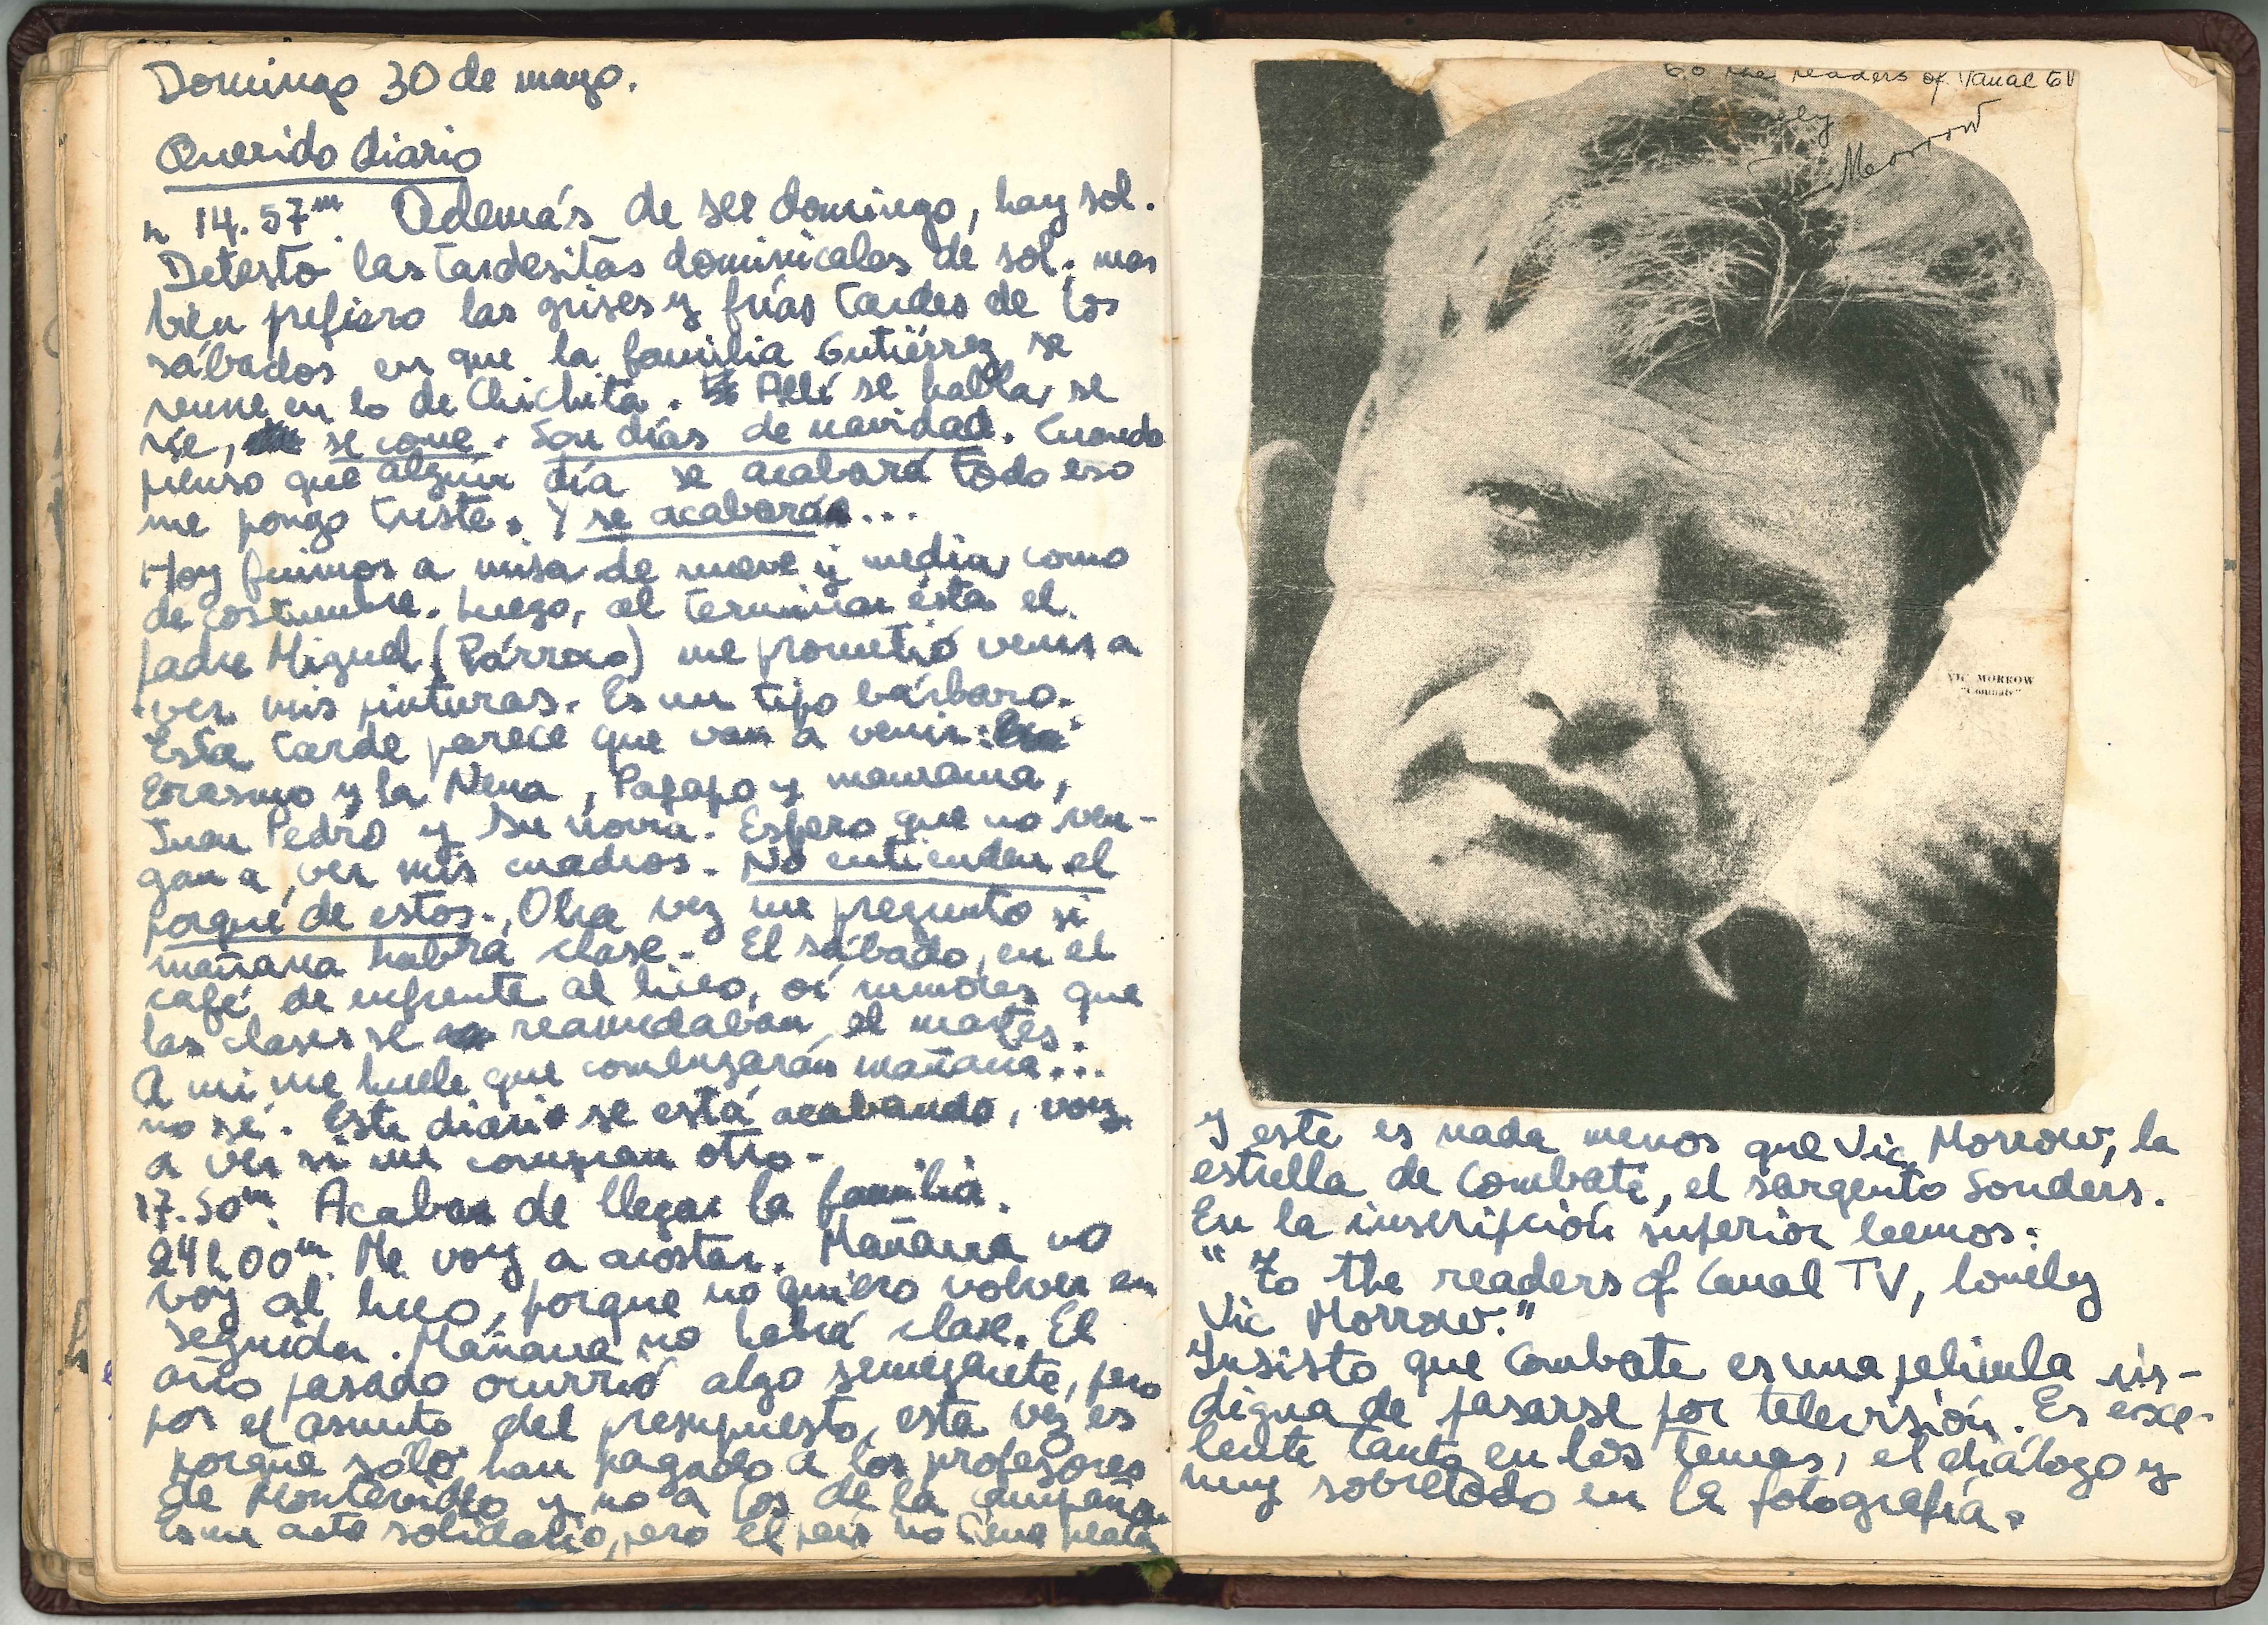 Domingo 30 de mayo.
Querido diario
h 14.57m Además de ser domingo, hay sol.
Detesto las tardesitas dominicales de sol. mas
bién prefiero las grises y frías tardes de los
sábados en que la familia Gutiérrez se
reune en lo de Chichita. Allí se habla, se
ríe, se come. Son días de navidad. Cuando
pienso que algún día se acabará todo eso
me pongo triste. Y se acabará...
Hoy fuimos a misa de nueve y media como
de costumbre. Luego, al terminar ésta el
padre Miguel (Párroco) me prometió venir a
ver mis pinturas. Es un tipo bárbaro.
Esta tarde parece que van a venir:
Erasmo y la Nena, Papapo y mamama,
Juan Pedro y su novia. Espero que no ven-
gan a ver mis cuadros. No entienden el
porqué de estos. Otra vez me pregunto si
mañana habrá clase. El sábado, en el
café de enfrente al liceo, oí rumores que
las clases se reanudaban el martes.
A mi me huele que comenzarán mañana...
no sé. Este diario se está acabando, voy
a ver si me compran otro.
17.50m. Acaban de llegar la familia.
24h00m. Me voy a acostar. Mañana no
voy al liceo, porque no quiero volver en
seguida. Mañana no habrá clase. El
año pasado ocurrió algo semejante, pero
por el asunto del presupuesto, esta vez es
porque sólo han pagado a los profesores
de Montevideo y no a los de la campaña.
Es un acto solidario, pero el país no tiene plata
to the readers of Canal TV
Morrow
VIC MORROW
"Combate"
Y este es nada menos que Vic Morrow, la
estrella de Combate, el sargento Sonders.
En la inscripción superior leemos:
"To the readers of Canal TV, lonely
Vic Morrow."
Insisto que Combate es una película
digna de pasarse por televisión. Es exce-
lente tanto en los temas, el diálogo y
muy sobretodo en la fotografía.